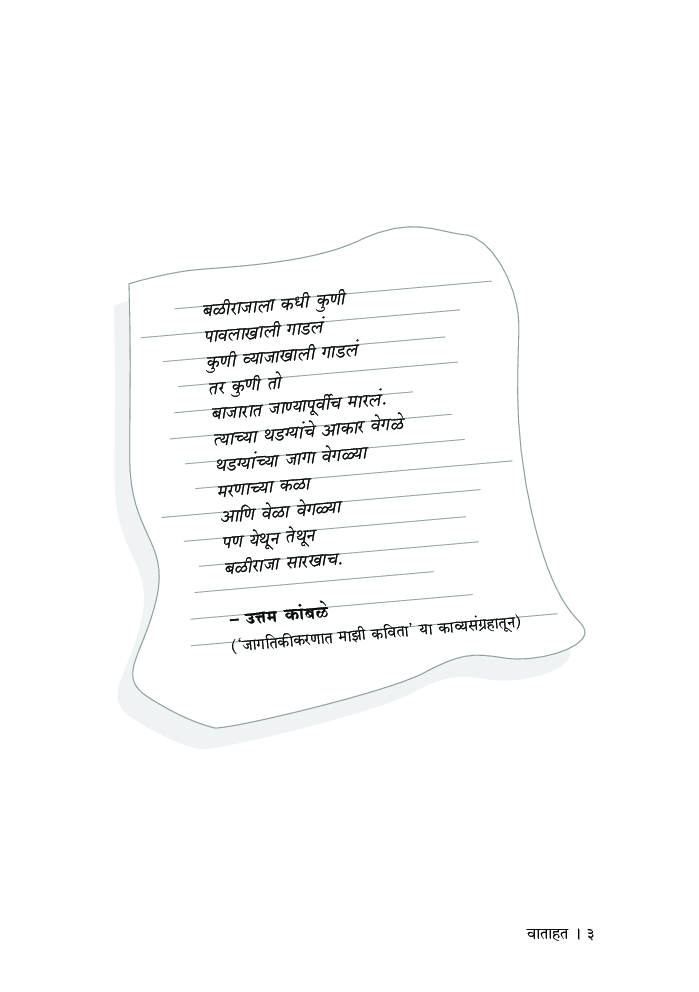 बळीराजाला कधी कुणी
पावलाखाली गाडलं
कुणी व्याजाखाली गाडलं
तर कुणी तो
बाजारात जाण्यापूर्वीच मारलं.
त्याच्या थडग्यांचे आकार वेगळे
थडग्यांच्या जागा वेगळ्या
मरणाच्या कळा
आणि वेळा वेगळ्या
पण येथून तेथून
बळीराजा सारखाच.
– उत्तम कांबळे
('जागतिकीकरणात माझी कविता' या काव्यसंग्रहातून)
वाताहत । ३